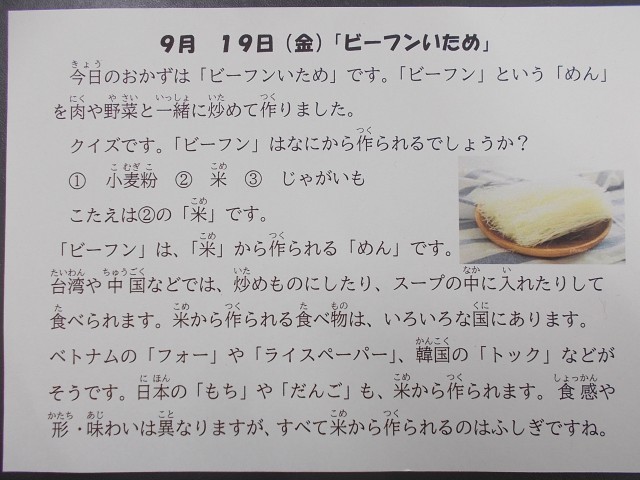 ９月　１９日（金）「ビーフンいため」
今日のおかずは「ビーフンいため」です。「ビーフン」という「めん」
を肉や野菜と一緒に炒めて作りました。
クイズです。「ビーフン」はなにから作られるでしょうか？
①　小麦粉　②　米　③　じゃがいも
こたえは②の「米」です。
「ビーフン」は、「米」から作られる「めん」です。
台湾や中国などでは、炒めものにしたり、スープの中に入れたりして
食べられます。米から作られる食べ物は、いろいろな国にあります。
ベトナムの「フォー」や「ライスペーパー」、韓国の「トック」などが
そうです。日本の「もち」や「だんご」も、米から作られます。食感や
形・味わいは異なりますが、すべて米から作られるのはふしぎですね。